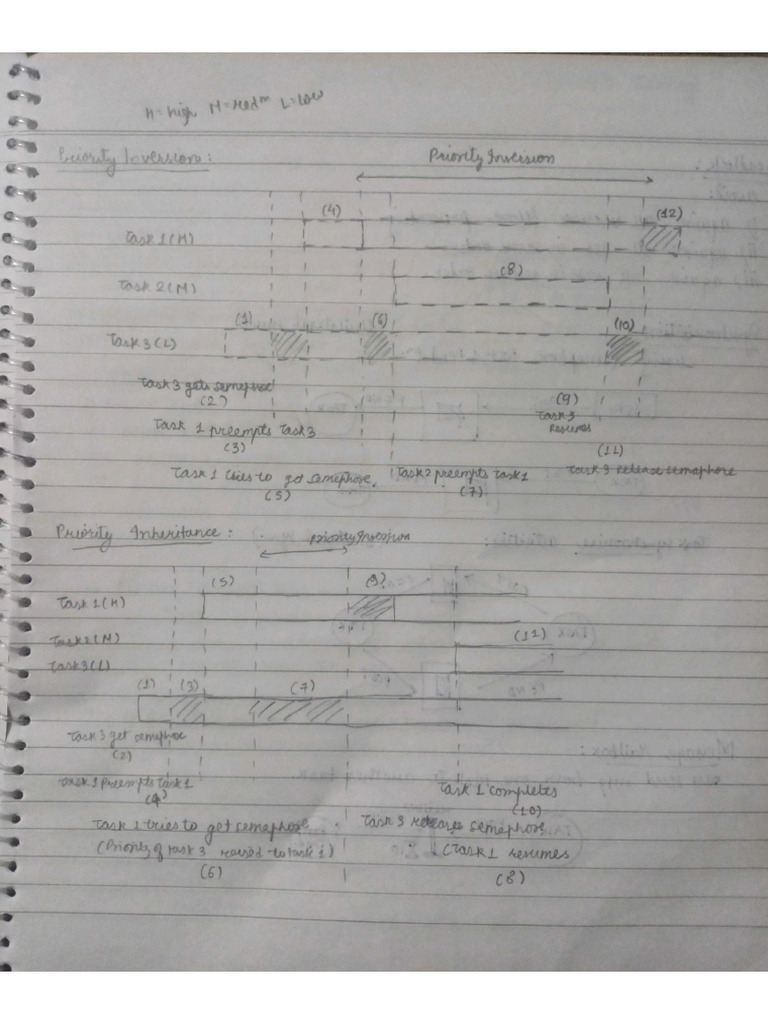 H=high M=medm L=low
Priority Inversion:
Priority Inversion
(4)
(12)
Task 1(H)
Task 2(M)
(8)
(1)
(6)
(10)
Task 3(L)
Task 3 gets semephore
(2)
(9)
Task 3
Resumes
Task 1 preempts Task 3
(3)
(11)
Task 1 tries to get semephore.
(5)
Task 2 preempts Task 1
(7)
Task 3 release semaphore
Priority Inheritance:
Priority Inversion
(5)
(9)
Task 1(H)
Task 2(M)
(11)
Task 3(L)
(1)
(3)
(7)
Task 3 get semephore
(2)
Task 1 Preempts Task 1
(4)
Task 1 completes
(10)
Task 1 tries to get semephore
(Priority of task 3 raised to task 1)
(6)
Task 3 releases semephore
(Task 1 resumes
(8)